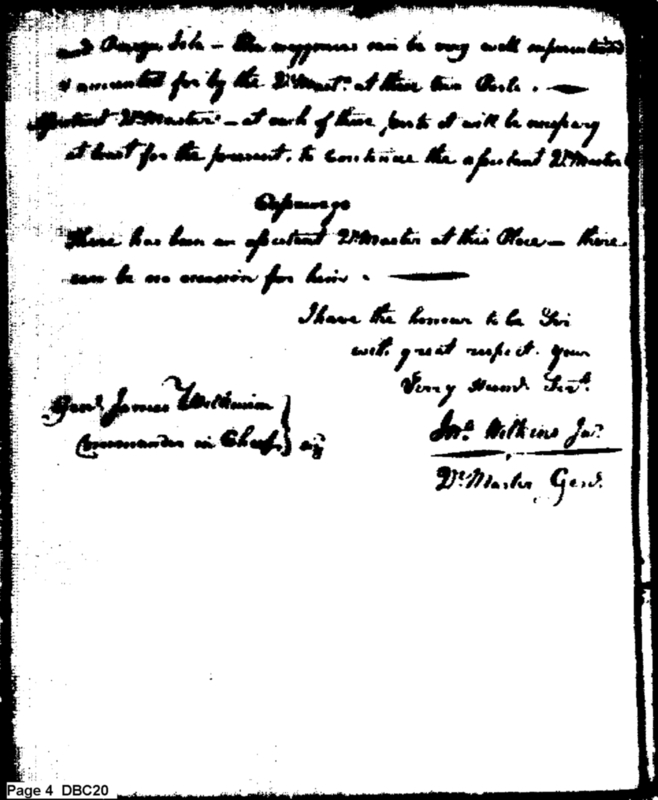 and Presque Isle – The waggoners can be very well superintended
& accounted for by the Qr Mastr. at these two Posts. —
Assistant Qr Master – at each of these posts it will be necessary
at least for the present, to continue the assistant Qr Master

There has been an assistant Qr Master at this Place – there
can be no occasion for him. —
I have the honour to be Sir
with great respect. your
Very Humb Servt.
Genl. James Wilkinson
Commander in Chief
Jno. Wilkins Junr.
Qr Master Genl.
Page 4 DBC20